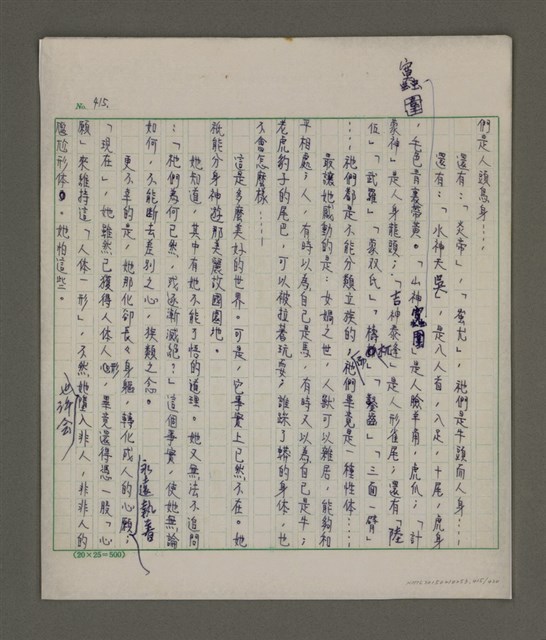 No. 415.
們是人頭馬身……
還有:「炎帝」,「蚩尤」,祂們是牛頭而人身……
還有:「水神天吳」,是八人首,八足,十尾,虎身
,毛色青裏帶黃。「山神鼉圍」是人臉羊角,虎爪;「計
蒙神」是人身龍頭;「吉神泰逢」是人形雀尾;還有「陸
伍」「武羅」「豕杈氏」「檮杌」「鑿齒」「三面一臂」
……祂們都是不能分類立族的,祂們果竟是一種性体……
最讓她感動的是:女媧之世,人獸可以雜居,能夠和
平相處;人,有時以為自己是馬,有時又以為自己是牛;
老虎豹子的尾巴,可以被拉著玩耍;誰踩了蟒的身体,也
不會怎麼樣……
這是多麼美好的世界。可是,它事實上已然不在。她
祇能分身神遊那美麗故國園地。
她知道,其中有她不能了悟的道理。她又無法不追問
:「祂們為何已然,或逐漸滅絕?」這個事實,使她無論
如何,不能斷去差別之心,族類之念。
更不幸的是,她那化卻長久身軀,轉化成人的心願;
永遠執着
「現在」,她雖然已獲得人体人形,果竟還得憑一股「心
願」來維持這「人体一形」,不然她也許會墮入非人,非非人的
尷尬形体。她怕這些。
(20×25=500)